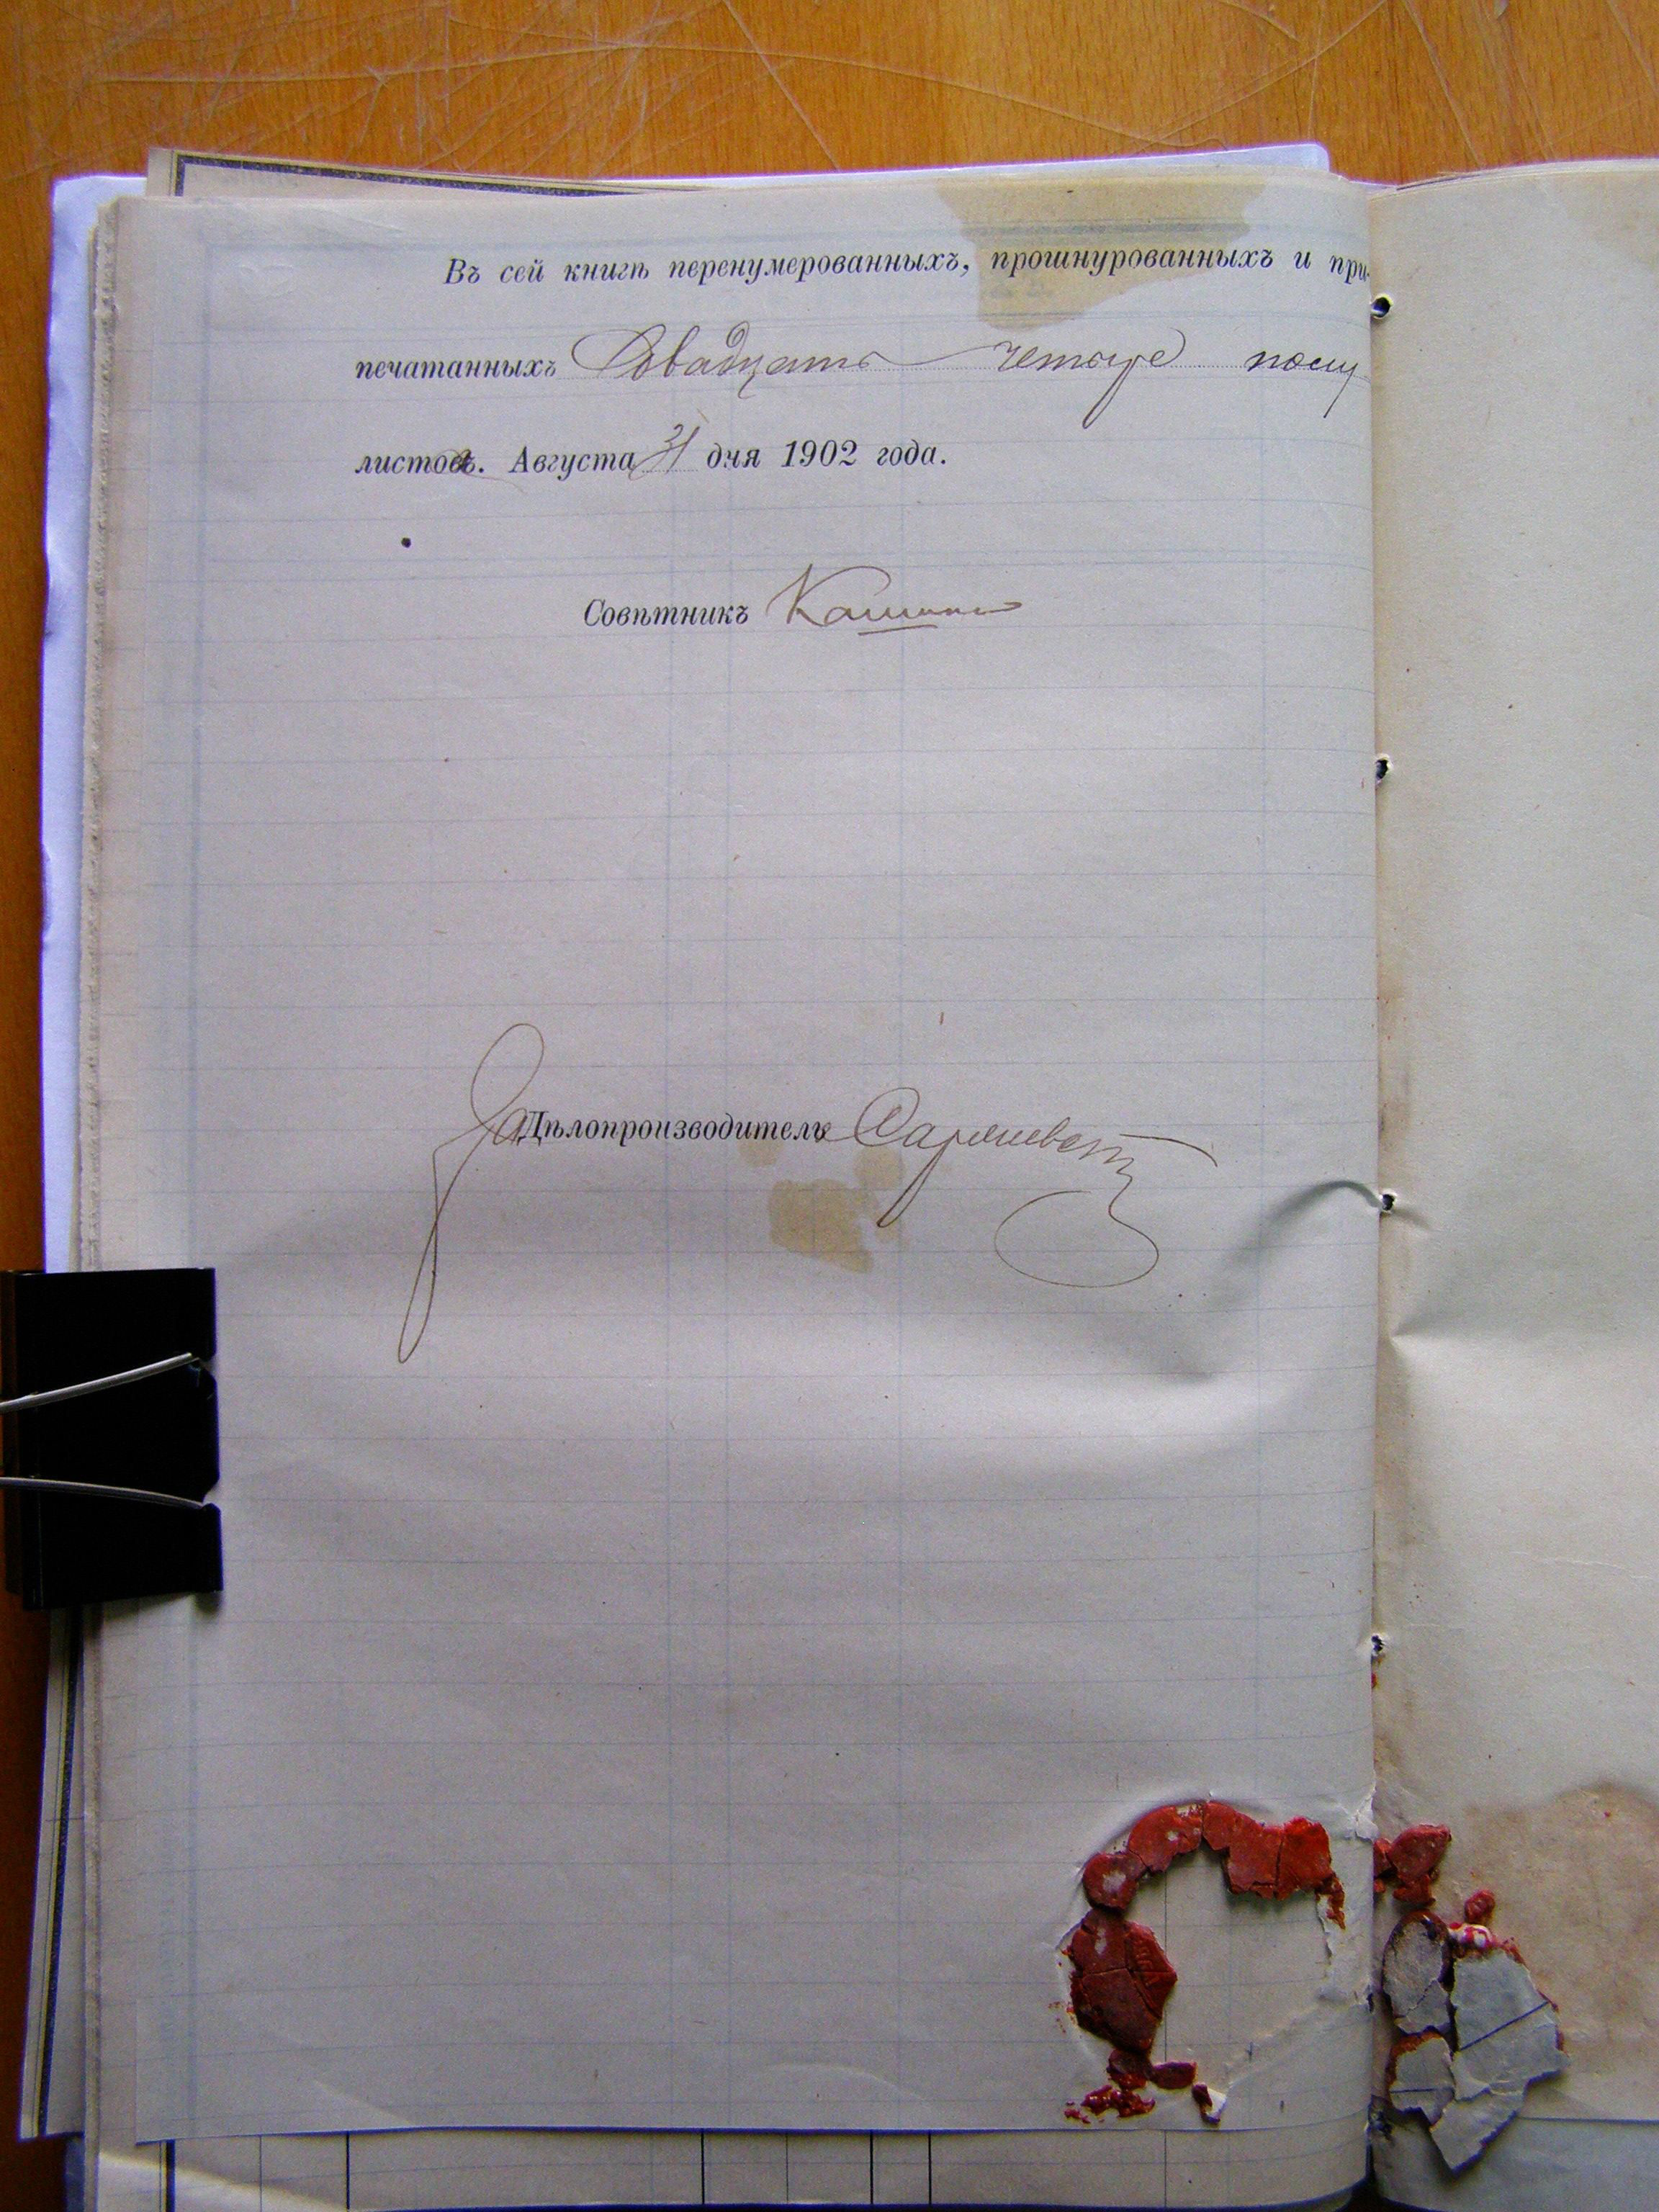 Въ сей книгѣ перенумерованныхъ, прошнурованныхъ и при-
печатанныхъ Двадцать четыре полу
листовъ. Августа 31 дня 1902 года.
Совѣтникъ
За Дѣлопроизводителя